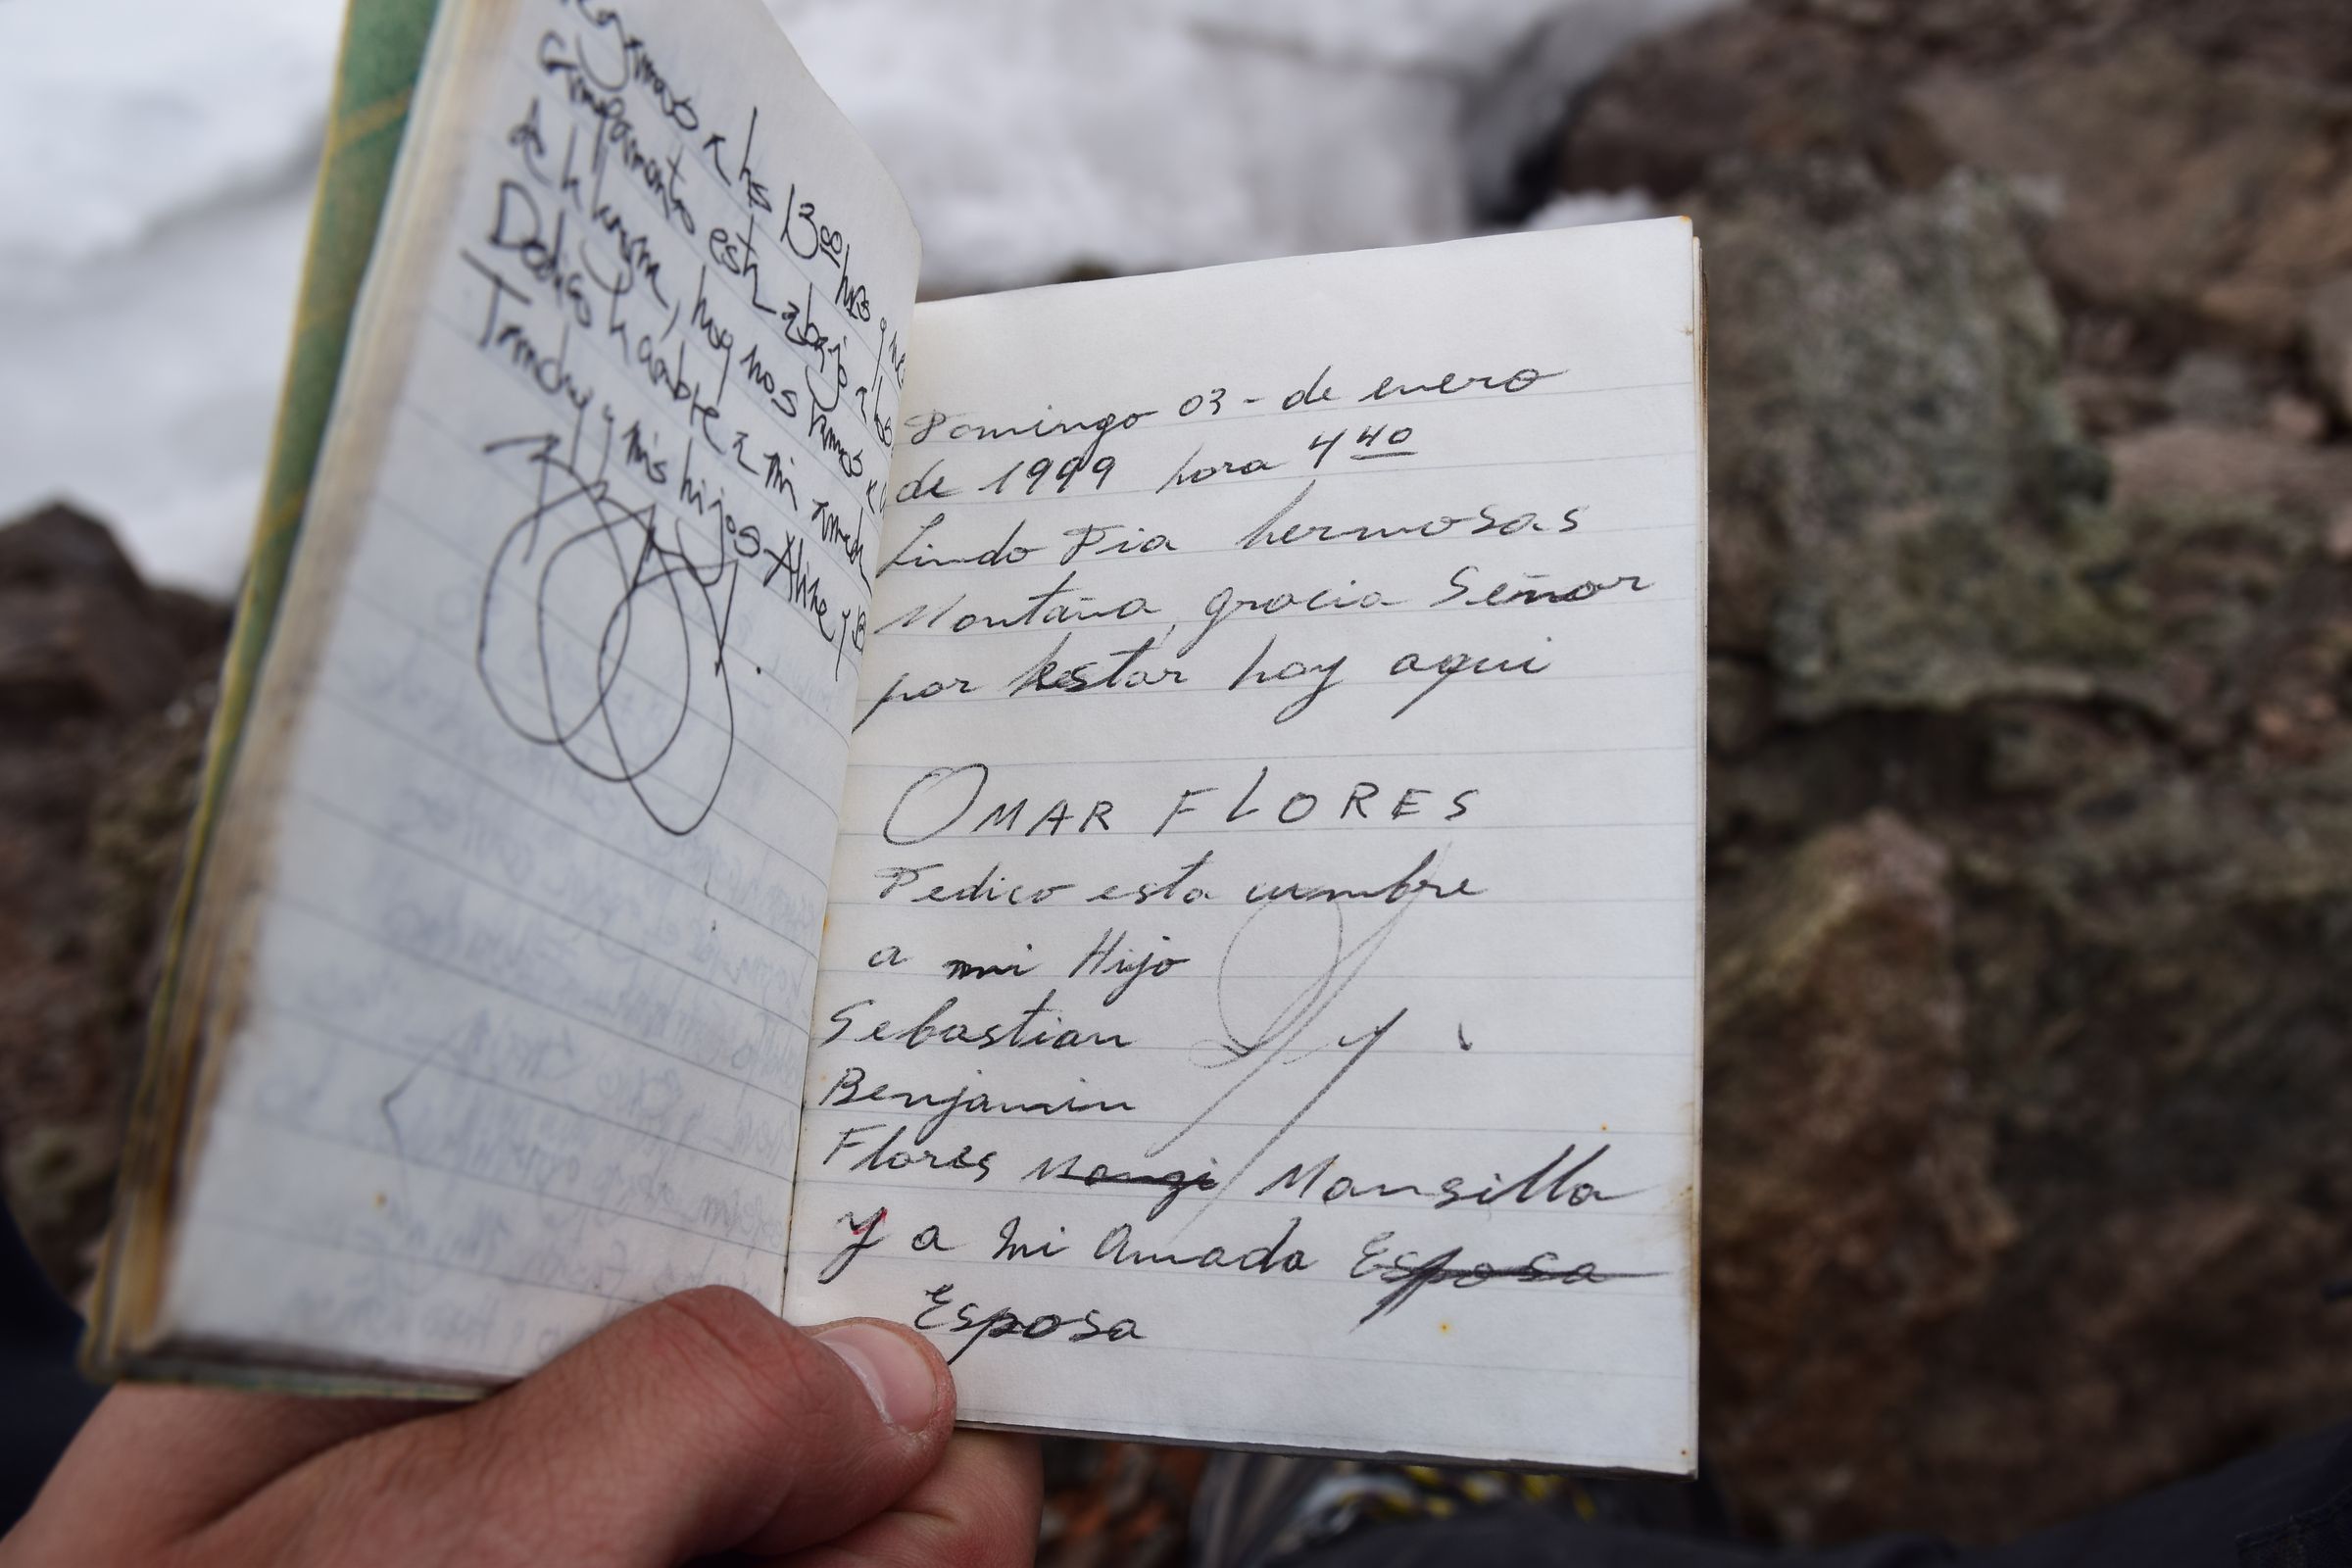 a las 13:00 hrs, 
Campamento está abajo a los
de la laguna, hoy nos vamos
Dedico la cumbre a mi amada
y mis hijos Aline y B
Domingo 03 - de enero
de 1999 hora 4 40
Lindo Dia hermosas
Montaña, gracia Señor
por estar hoy aqui
OMAR FLORES
Dedico esta cumbre
a mi Hijo
Sebastian
Benjamin
Flores Mansilla
y a mi Amada Esposa
Esposa